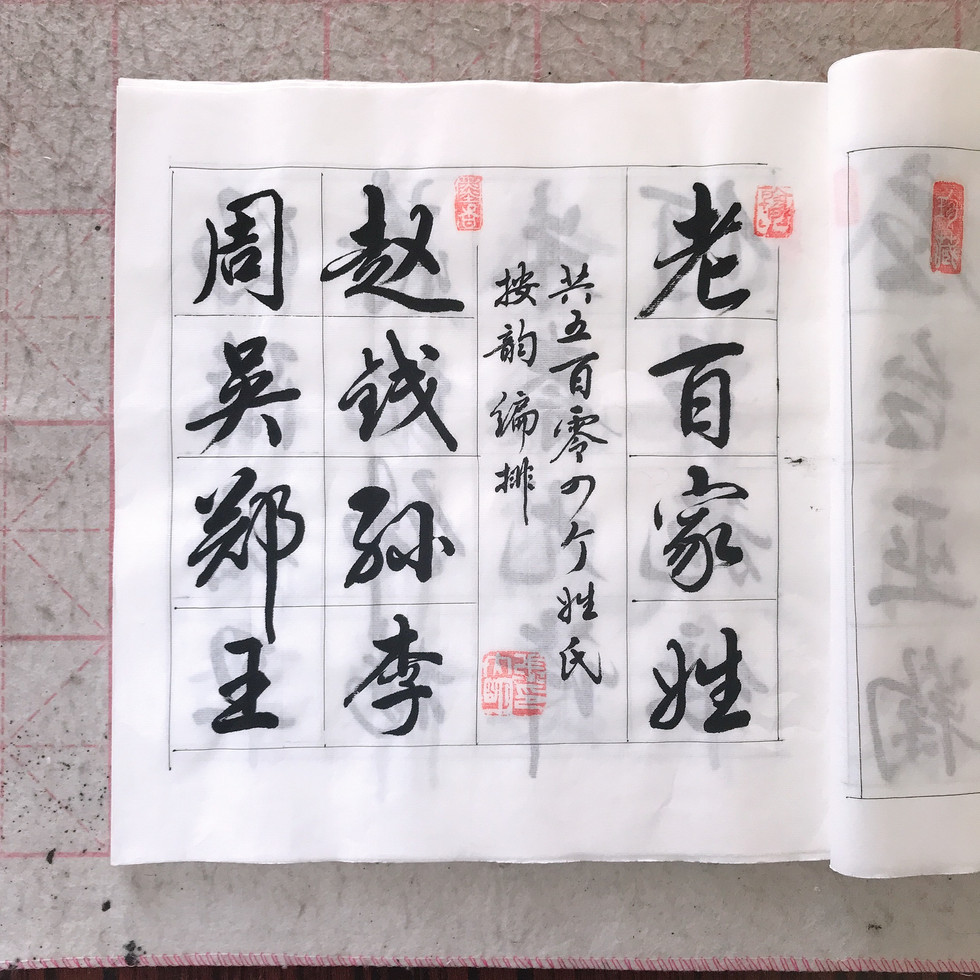 老百家姓
共五百零四个姓氏
按韵编排
赵钱孙李
周吴郑王